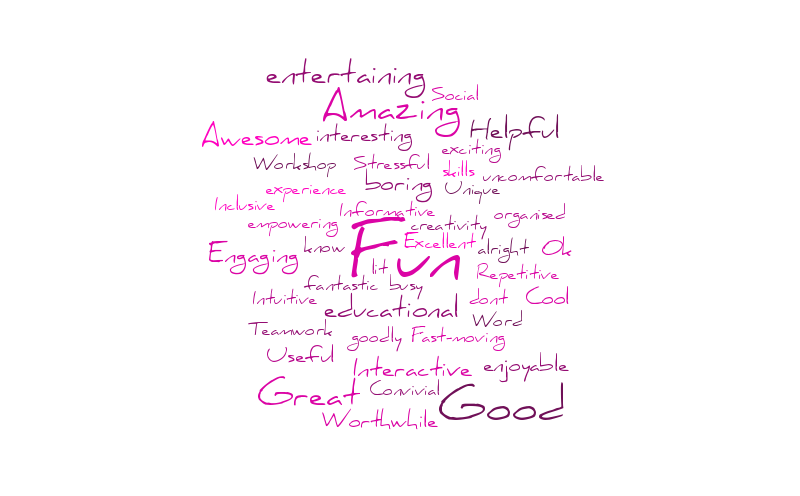 entertaining
Social
Amazing
Helpful
Awesome interesting
exciting
Workshop Stressful
skills uncomfortable
experience boring Unique
Inclusive Informative organised
empowering creativity
Fun
Engaging know Excellent alright Ok
lit Repetitive
fantastic busy
Intuitive educational dont Cool
Teamwork Word
goodly Fast-moving
Useful
Interactive enjoyable
Great Convivial Good
Worthwhile